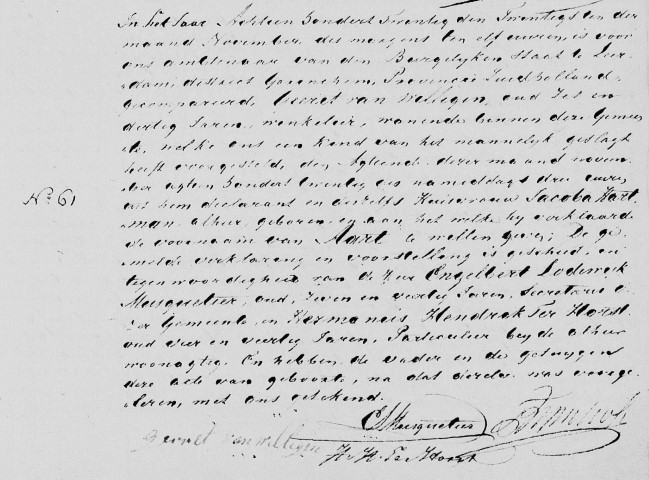 In het Jaar Achtien Hondert Twentig den Twentigsten der
maand November, des morgens ten elf uuren, is voor
ons ambtenaar van den Burgelyken staat te Leer-
dam, district Gorinchem, Provincie Zuidholland,
gecompareerd, Gerret van Wellegen, oud Zes en
dertig Jaren, winkelier, wonende binnen deze Gemeen
te, welke ons een Kind van het mannelyk geslagt
heeft voorgesteld, den Agtiende dezer maand novem-
ber agtien Hondert Twentig des namiddags drie uuren,
uit hem declarant en deszelfs Huisvrouw Jacoba Hart-
man alhier geboren en aan het welke hy verklaarde
de voornaam van Aart te willen geven; De ge-
melde verklaring en voorstelling is geschied, in
tegenwoordigheid van de Heer Engelbert Lodewyk
Musquetier, oud, Zeven en veertig Jaren, Secretaris
der Gemeente, en Hermanus Hendrik Ter Horst
oud vier en veertig Jaren, Particulier beyde alhier
woonagtig. En hebben de vader en de getuygen
deze acte van geboorte, na dat dezelve was voorge-
leezen, met ons getekend.
No 61
Gerret van Wellegen
Musquetier
H. H. Ter Horst